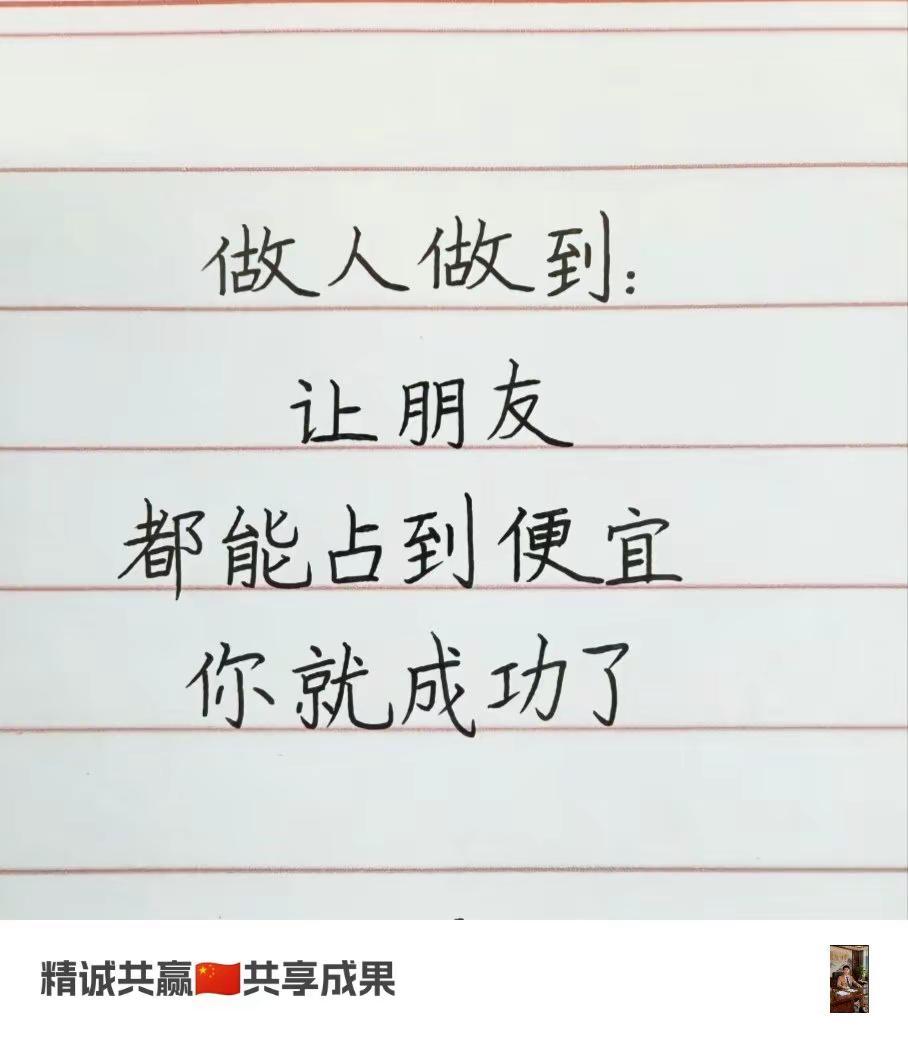 做人做到:
让朋友
都能占到便宜
你就成功了
精诚共赢🇨🇳共享成果